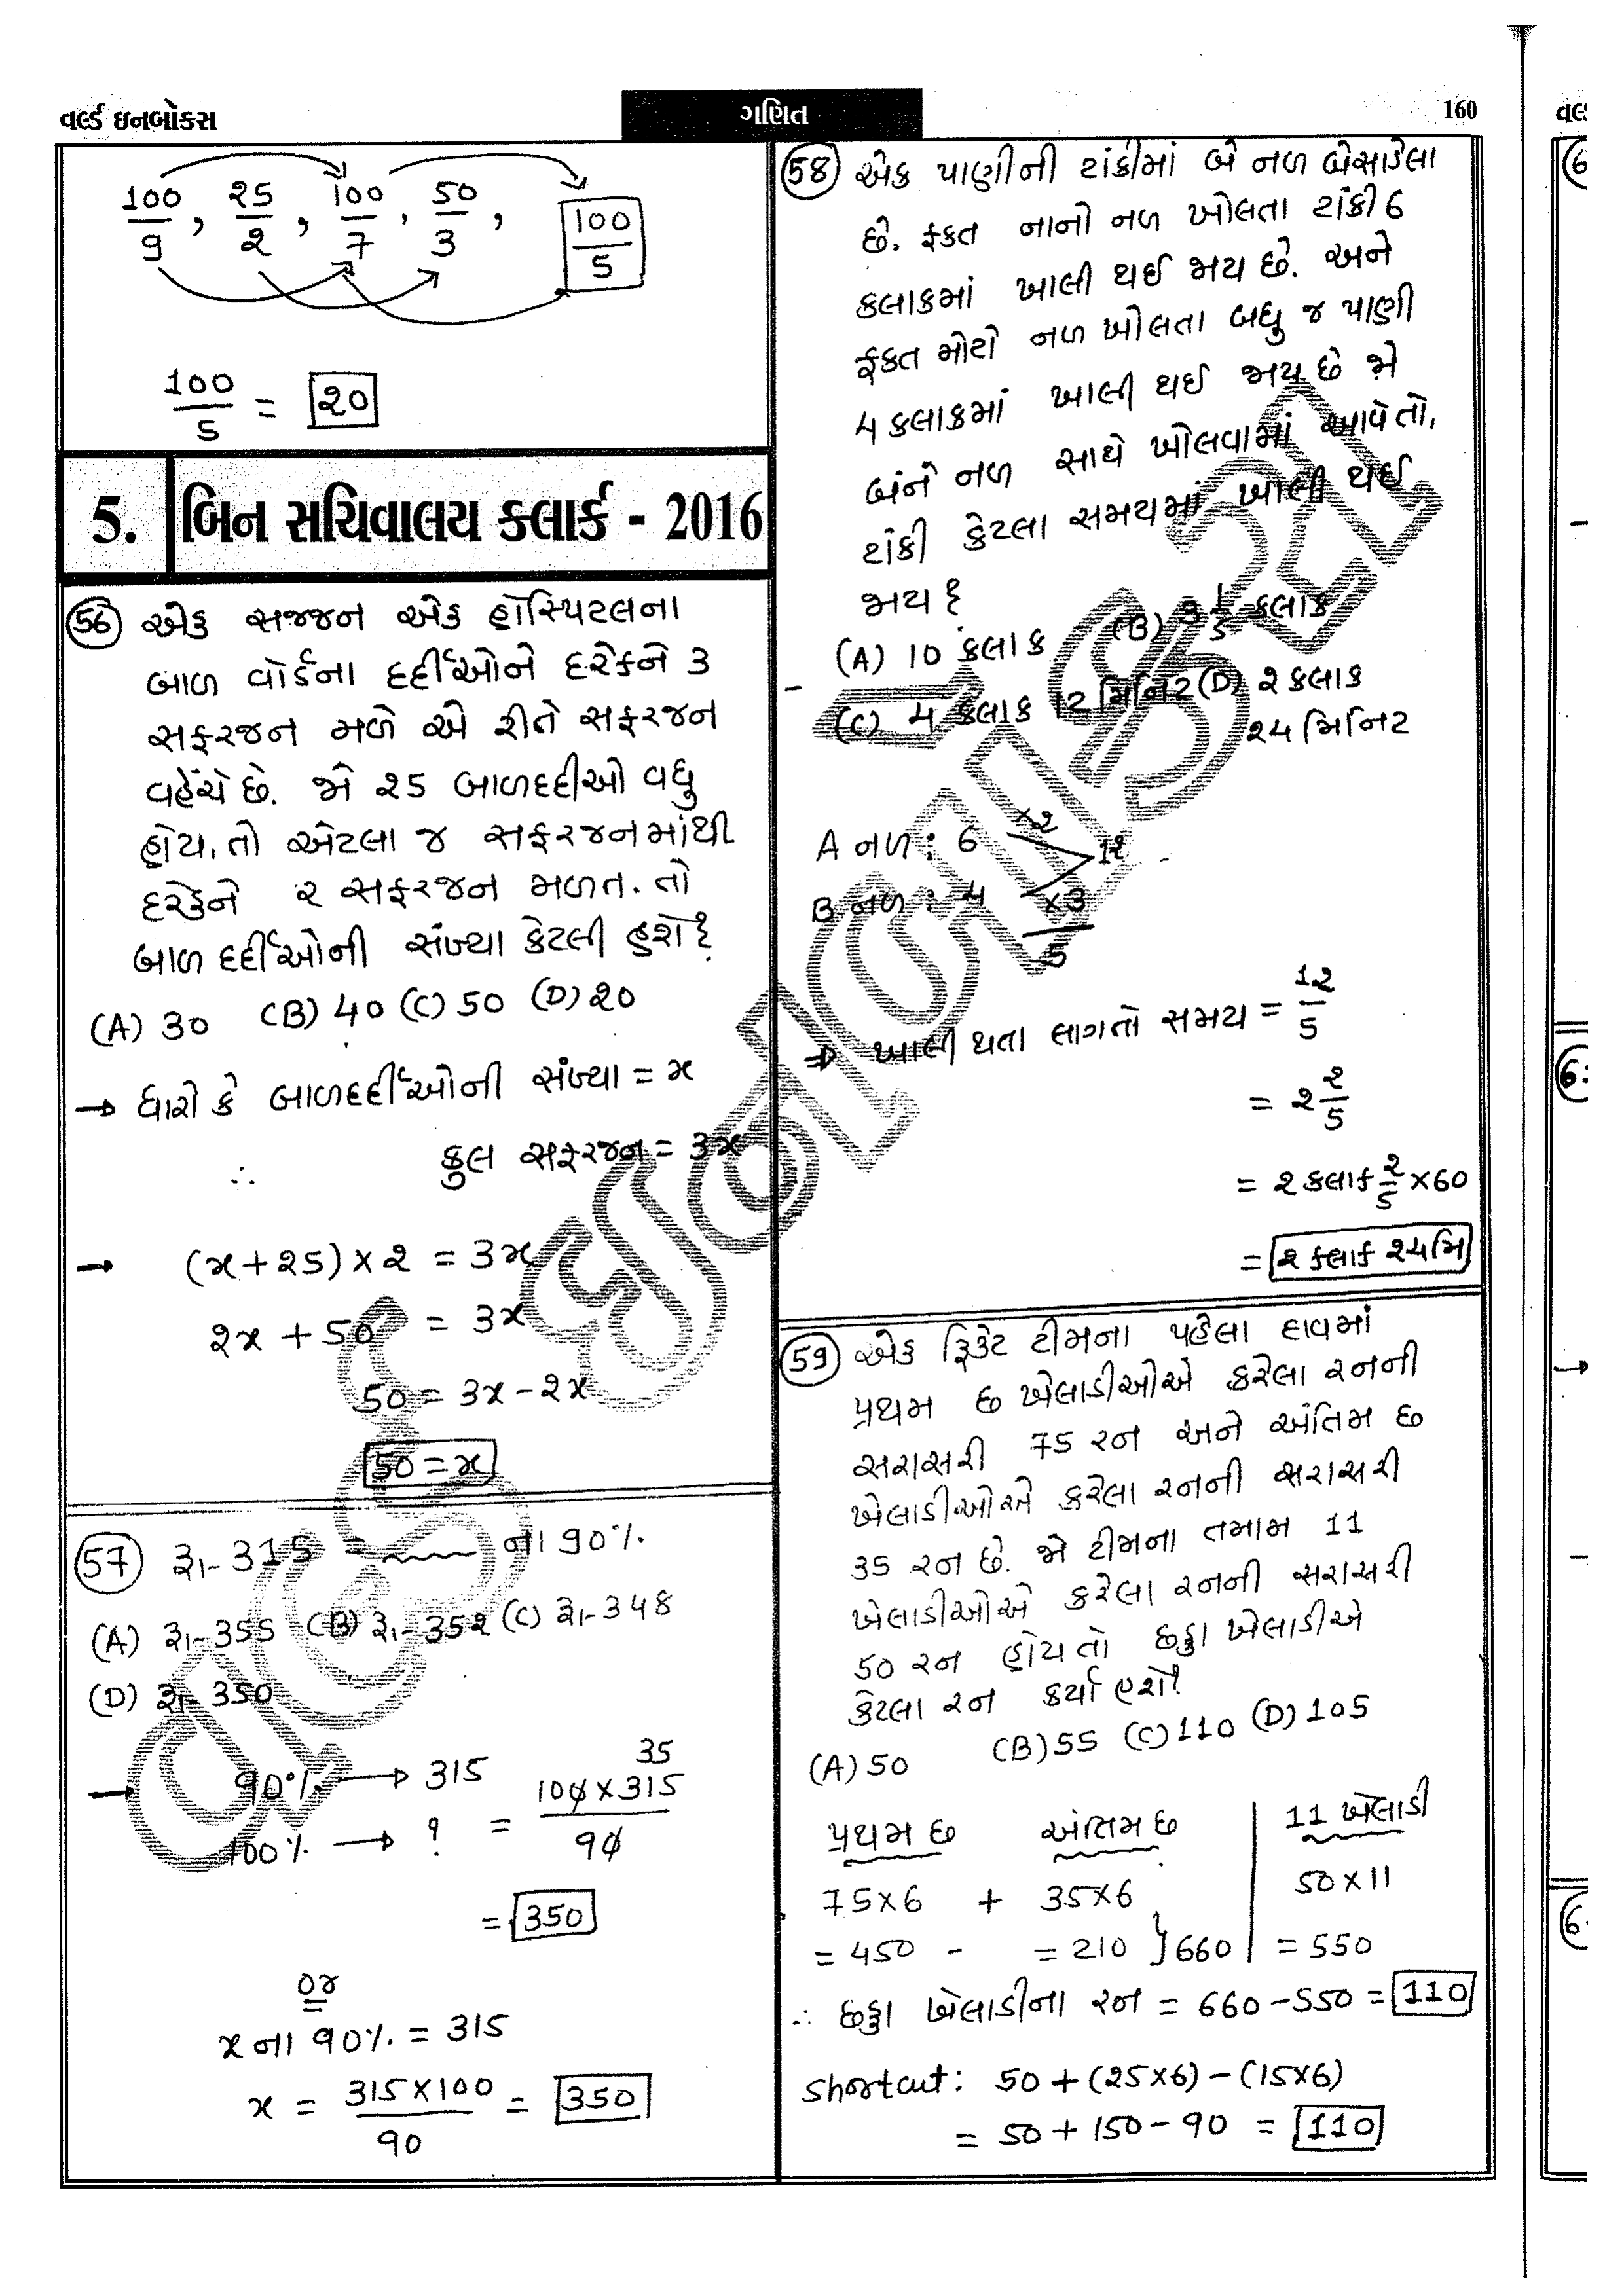 વર્લ્ડ ઇનબોક્સ
ગણિત
160
100/9 , 25/2 , 100/7 , 50/3 , 100/5
100/5 = 20
5. બિન સચિવાલય ક્લાર્ક - 2016
56 એક સજ્જન એક હોસ્પિટલના
બાળ વોર્ડના દર્દીઓને દરેકને 3
સફરજન મળે એ રીતે સફરજન
વહેંચે છે. જો 25 બાળદર્દીઓ વધુ
હોય, તો એટલા જ સફરજનમાંથી
દરેકને 2 સફરજન મળત. તો
બાળ દર્દીઓની સંખ્યા કેટલી હશે?
(A) 30 (B) 40 (C) 50 (D) 20
→ ધારો કે બાળદર્દીઓની સંખ્યા = x
∴ કુલ સફરજન = 3x
→ (x+25)×2 = 3x
2x + 50 = 3x
50 = 3x - 2x
50 = x
57 રૂા- 315 = ____ ના 90%.
(A) રૂા- 355 (B) રૂા- 352 (C) રૂા- 348
(D) રૂા- 350
→ 90% → 315
100% → ? = 100×315/90
35
= 350
or
x ના 90% = 315
x = 315×100/90 = 350
58 એક પાણીની ટાંકીમાં બે નળ બેસાડેલા
છે. ફકત નાનો નળ ખોલતા ટાંકી 6
કલાકમાં ખાલી થઈ જાય છે. અને
ફકત મોટો નળ ખોલતા બધુ જ પાણી
4 કલાકમાં ખાલી થઈ જાય છે જો
બંને નળ સાથે ખોલવામાં આવે તો,
ટાંકી કેટલા સમયમાં ખાલી થઈ
જાય ?
(A) 10 કલાક (B) 3 1/5 કલાક
(C) 4 કલાક 12 મિનિટ (D) 2 કલાક
24 મિનિટ
A નળ : 6 ×2
12
B નળ : 4 ×3
5
⇒ ખાલી થતા લાગતો સમય = 12/5
= 2 2/5
= 2 કલાક 2/5 ×60
= 2 કલાક 24 મિ
59 એક ક્રિકેટ ટીમના પહેલા દાવમાં
પ્રથમ છ ખેલાડીઓએ કરેલા રનની
સરાસરી 75 રન અને અંતિમ છ
ખેલાડીઓએ કરેલા રનની સરાસરી
35 રન છે. જો ટીમના તમામ 11
ખેલાડીઓએ કરેલા રનની સરાસરી
50 રન હોય તો છઠ્ઠા ખેલાડીએ
કેટલા રન કર્યા હશે?
(A) 50 (B) 55 (C) 110 (D) 105
પ્રથમ છ અંતિમ છ 11 ખેલાડી
75×6 + 35×6 50×11
= 450 - = 210 } 660 = 550
∴ છઠ્ઠા ખેલાડીના રન = 660-550 = 110
Shortcut: 50+(25×6)-(15×6)
= 50+150-90 = 110